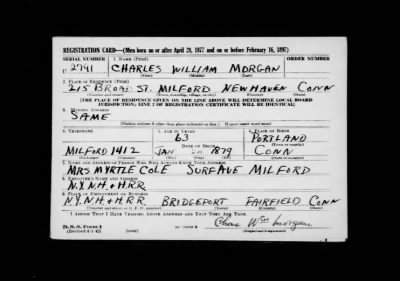 REGISTRATION CARD—(Men born on or after April 28, 1877 and on or before February 16, 1897)
SERIAL NUMBER 1. NAME (Print) ORDER NUMBER
U 2791 CHARLES WILLIAM MORGAN
(First) (Middle) (Last)
2. PLACE OF RESIDENCE (Print)
215 BROAD ST. MILFORD NEW HAVEN CONN
(Number and street) (Town, township, village, or city) (County) (State)
[THE PLACE OF RESIDENCE GIVEN ON THE LINE ABOVE WILL DETERMINE LOCAL BOARD
JURISDICTION; LINE 2 OF REGISTRATION CERTIFICATE WILL BE IDENTICAL]
3. MAILING ADDRESS
SAME
[Mailing address if other than place indicated on line 2. If same insert word same]
4. TELEPHONE 5. AGE IN YEARS 6. PLACE OF BIRTH
63 PORTLAND
DATE OF BIRTH (Town or county)
MILFORD 1412 JAN 1879 CONN
(Exchange) (Number) (Mo.) (Day) (Yr.) (State or country)
7. NAME AND ADDRESS OF PERSON WHO WILL ALWAYS KNOW YOUR ADDRESS
MRS MYRTLE COLE SURF AVE MILFORD
8. EMPLOYER'S NAME AND ADDRESS
N.Y.N.H. & H.R.R.
9. PLACE OF EMPLOYMENT OR BUSINESS
N.Y.N.H. & H.R.R. BRIDGEPORT FAIRFIELD CONN
(Number and street or R. F. D. number) (Town) (County) (State)
I AFFIRM THAT I HAVE VERIFIED ABOVE ANSWERS AND THAT THEY ARE TRUE.
D. S. S. Form 1
(Revised 4-1-42) Chas. Wm Morgan